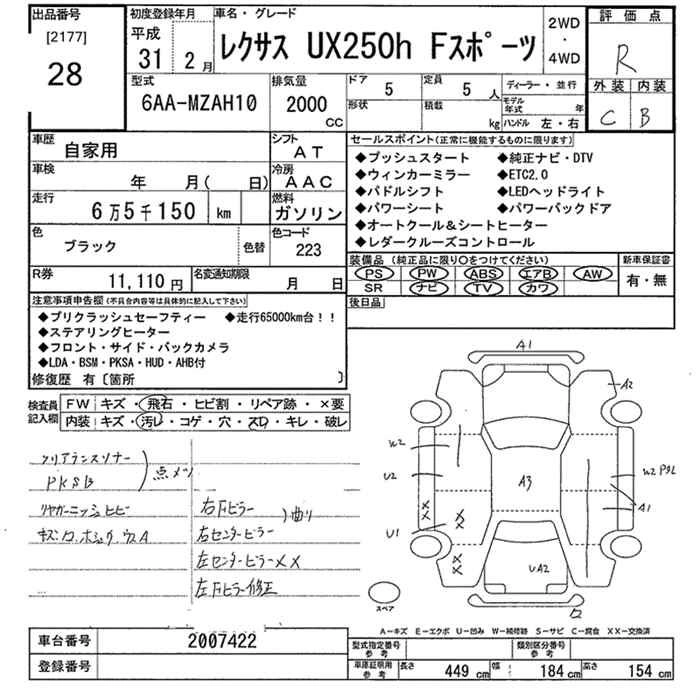 出品番号
[2177]
28
初度登録年月
平成
31 2月
車名・グレード
レクサス UX250h Fスポーツ
2WD
・
4WD
評価点
R
外装 内装
C B
型式
6AA-MZAH10
排気量
2000
CC
ドア 5
定員 5 人
形状
積載 kg
ディーラー・並行
モデル年式 年
ハンドル 左・右
車歴
自家用
シフト
AT
車検
年 月( 日)
冷房
AAC
走行
6万5千150 km
燃料
ガソリン
色
ブラック
色替
色コード
223
R券
11,110円
名変通知期限
月 日
セールスポイント(正常に機能するものに限り)
◆プッシュスタート ◆純正ナビ・DTV
◆ウィンカーミラー ◆ETC2.0
◆パドルシフト ◆LEDヘッドライト
◆パワーシート ◆パワーバックドア
◆オートクール&シートヒーター
◆レダークルーズコントロール
装備品(純正品に限り○をつけてください)
PS PW ABS エアB AW
SR ナビ TV カワ
新車保証書
有・無
後日品
注意事項申告欄(不具合内容等は具体的に記入して下さい)
◆プリクラッシュセーフティー ◆走行65000km台!!
◆ステアリングヒーター
◆フロント・サイド・バックカメラ
◆LDA・BSM・PKSA・HUD・AHB付
修復歴 有〔箇所 〕
検査員記入欄
FW キズ・飛石・ヒビ割・リペア跡・×要
内装 キズ・汚レ・コゲ・穴・スレ・キレ・破レ
クリアランスソナー
PKSB
点メツ
リヤガーニッシュヒビ
右Fピラー
右センターピラー
曲り
左センターピラーXX
左Fピラー修正
A1
A2
W2
U2
U1
XX
XX
XX
A3
UA2
W2
A1
ロ
スペア
A-キズ E-エクボ U-凹み W-補修跡 S-サビ C-腐食 XX-交換済
車台番号
2007422
登録番号
型式指定番号
参考
類別区分番号
参考
車庫証明用
参考
長さ 449 cm
幅 184 cm
高さ 154 cm